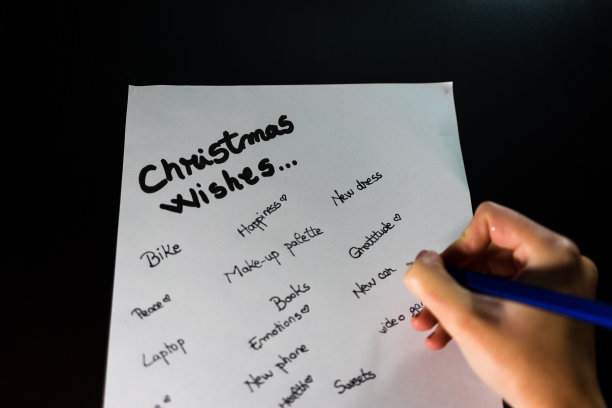 Christmas
Wishes...
Bike
Happiness♡
New dress
Make-up palette
Gratitude♡
Peace♡
Books
New car
Laptop
Emotions♡
video
New phone
Health♡
Sweets